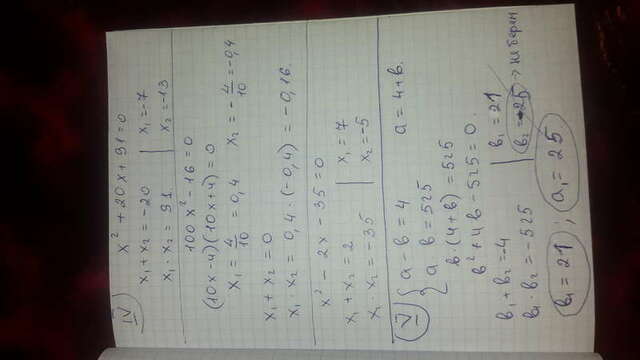 IV) x² + 20x + 91 = 0
x₁ + x₂ = -20 | x₁ = -7
x₁ · x₂ = 91 | x₂ = -13
100x² - 16 = 0
(10x-4)(10x+4) = 0
x₁ = 4/10 = 0,4 x₂ = -4/10 = -0,4
x₁ + x₂ = 0
x₁ · x₂ = 0,4 · (-0,4) = -0,16.
x² - 2x - 35 = 0
x₁ + x₂ = 2 | x₁ = 7
x₁ · x₂ = -35 | x₂ = -5
V) { a - b = 4 a = 4 + b.
{ a b = 525
b · (4 + b) = 525
b² + 4b - 525 = 0.
b₁ + b₂ = -4 | b₁ = 21
b₁ · b₂ = -525 | b₂ = -25 → не берем
b₁ = 21 ; a₁ = 25